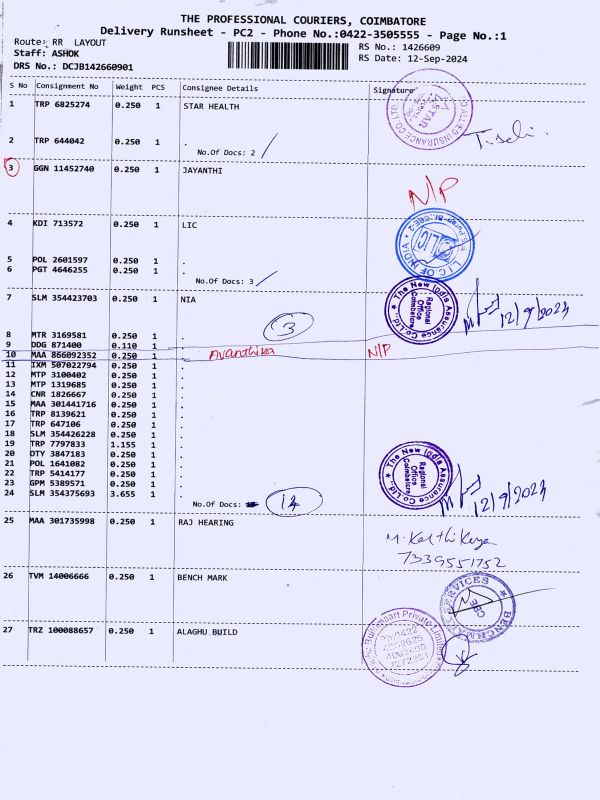 THE PROFESSIONAL COURIERS, COIMBATORE
Delivery Runsheet - PC2 - Phone No.:0422-3505555 - Page No.:1
Route: RR LAYOUT
RS No.: 1426609
Staff: ASHOK
RS Date: 12-Sep-2024
DRS No.: DCJB142660901
S No Consignment No Weight PCS Consignee Details Signature
1 TRP 6825274 0.250 1 STAR HEALTH
ALLIED INSURANCE CO.LTD
STAR
2 TRP 644042 0.250 1 .
No.Of Docs: 2
3 GGN 11452740 0.250 1 JAYANTHI
N/P
4 KDI 713572 0.250 1 LIC
L.I.C. OF INDIA
LIC
5 POL 2601597 0.250 1 .
6 PGT 4646255 0.250 1 .
No.Of Docs: 3
7 SLM 354423703 0.250 1 NIA
The New India Assurance Co.Ltd.
Regional Office Coimbatore
12/9/2023
3
8 MTR 3169581 0.250 1 .
9 DDG 871400 0.110 1 .
10 MAA 866092352 0.250 1 . Avanthika N/P
11 IXM 507022794 0.250 1 .
12 MTP 3100402 0.250 1 .
13 MTP 1319685 0.250 1 .
14 CNR 1826667 0.250 1 .
15 MAA 301441716 0.250 1 .
16 TRP 8139621 0.250 1 .
17 TRP 647106 0.250 1 .
18 SLM 354426228 0.250 1 .
19 TRP 7797833 1.155 1 .
20 DTY 3847183 0.250 1 .
21 POL 1641082 0.250 1 .
22 TRP 5414177 0.250 1 .
23 GPM 5389571 0.250 1 .
24 SLM 354375693 3.655 1 .
The New India Assurance Co.Ltd.
Regional Office Coimbatore
12/9/2023
No.Of Docs: 14
25 MAA 301735998 0.250 1 RAJ HEARING
M. Karthikeya
7339551752
26 TVM 14006666 0.250 1 BENCH MARK
BENCHMARK SERVICES
27 TRZ 100088657 0.250 1 ALAGHU BUILD